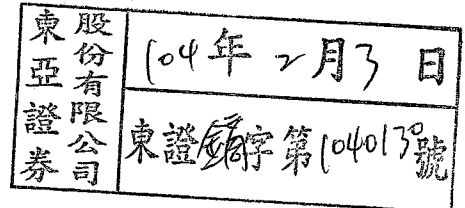 東亞證券
股份有限公司
104年2月3日
東證字第1040130號